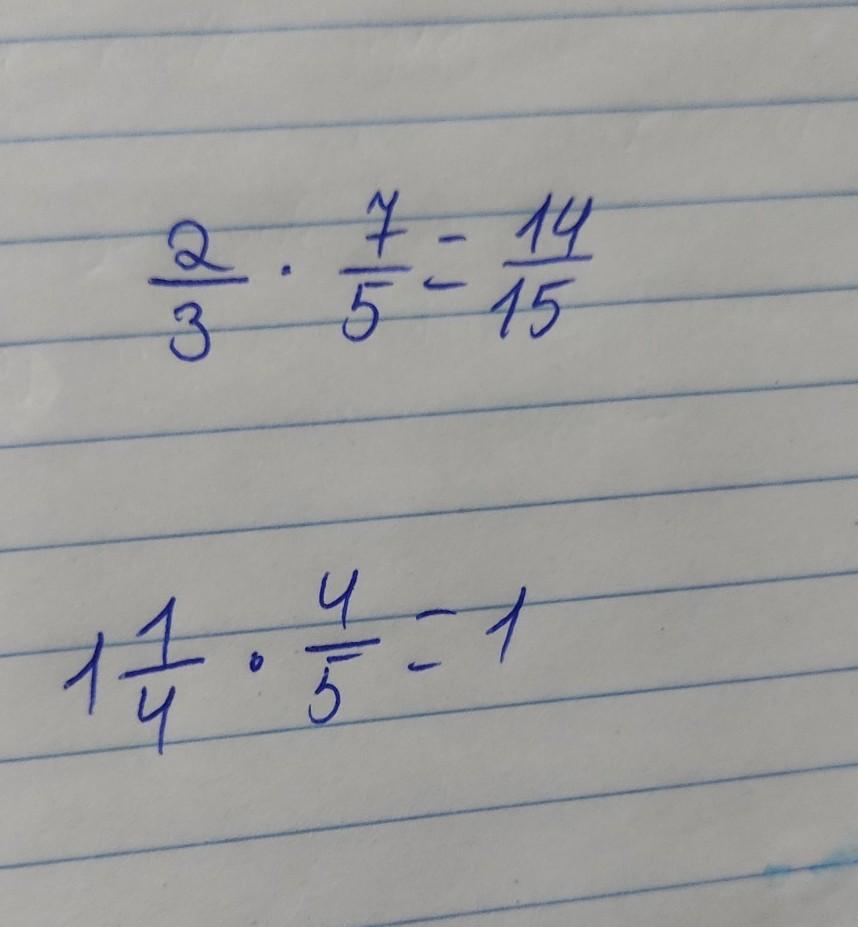 2/3 · 7/5 = 14/15
1 1/4 · 4/5 = 1